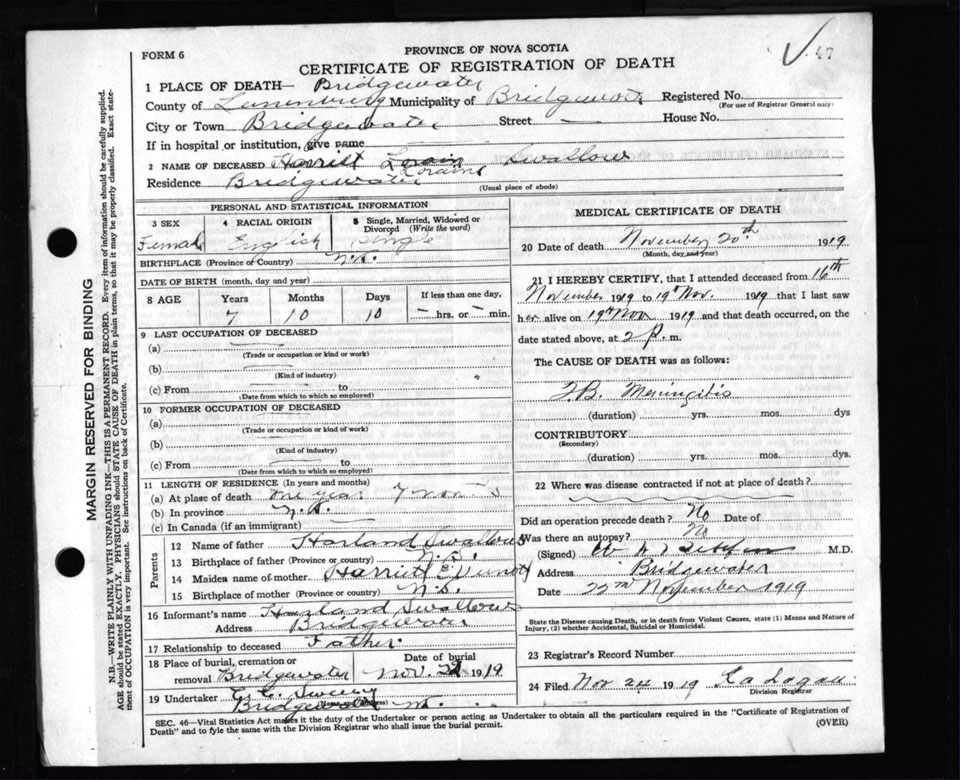 PROVINCE OF NOVA SCOTIA
FORM 6
CERTIFICATE OF REGISTRATION OF DEATH
47
1 PLACE OF DEATH— Bridgewater
County of Lunenburg Municipality of Bridgewater Registered No.
(For use of Registrar General only)
City or Town Bridgewater Street — House No.
If in hospital or institution, give name
2 NAME OF DECEASED Harriet Lorain Swallow
Loraine
Residence Bridgewater
(Usual place of abode)
PERSONAL AND STATISTICAL INFORMATION
3 SEX 4 RACIAL ORIGIN 5 Single, Married, Widowed or Divorced (Write the word)
Female English Single
BIRTHPLACE (Province of Country) N.S.
DATE OF BIRTH (month, day and year)
8 AGE Years Months Days If less than one day,
7 10 10 — hrs. or — min.
9 LAST OCCUPATION OF DECEASED
(a)
(Trade or occupation or kind of work)
(b)
(Kind of industry)
(c) From to
(Date from which to which so employed)
10 FORMER OCCUPATION OF DECEASED
(a)
(Trade or occupation or kind of work)
(b)
(Kind of industry)
(c) From to
(Date from which to which so employed)
11 LENGTH OF RESIDENCE (In years and months)
(a) At place of death one year 7 months
(b) In province N.S.
(c) In Canada (if an immigrant)
Parents
12 Name of father Harland Swallow
13 Birthplace of father (Province or country) N.S.
14 Maiden name of mother Harriet E
15 Birthplace of mother (Province or country) N.S.
16 Informant's name Harland Swallow
Address Bridgewater
17 Relationship to deceased Father
18 Place of burial, cremation or removal Bridgewater Date of burial Nov. 1919
19 Undertaker Sweeny
Bridgewater N.S.
MEDICAL CERTIFICATE OF DEATH
20 Date of death November 20th 1919
(Month, day and year)
21 I HEREBY CERTIFY, that I attended deceased from 16th
November 1919 to 19th Nov. 1919 that I last saw
her alive on 19th Nov 1919 and that death occurred, on the
date stated above, at 2 p. m.
The CAUSE OF DEATH was as follows:
T.B. Meningitis
(duration) yrs. mos. dys
CONTRIBUTORY
(Secondary)
(duration) yrs. mos. dys.
22 Where was disease contracted if not at place of death?
Did an operation precede death? No Date of
Was there an autopsy? No
(Signed) M.D.
Address Bridgewater
Date 22nd November 1919
State the Disease causing Death, or in death from Violent Causes, state (1) Means and Nature of Injury, (2) whether Accidental, Suicidal or Homicidal.
23 Registrar's Record Number
24 Filed Nov 24 1919
Division Registrar
SEC. 46—Vital Statistics Act makes it the duty of the Undertaker or person acting as Undertaker to obtain all the particulars required in the "Certificate of Registration of
Death" and to fyle the same with the Division Registrar who shall issue the burial permit.
(OVER)
MARGIN RESERVED FOR BINDING
N.B.—WRITE PLAINLY WITH UNFADING INK—THIS IS A PERMANENT RECORD. Every item of information should be carefully supplied.
AGE should be stated EXACTLY. PHYSICIANS should STATE CAUSE OF DEATH in plain terms, so that it may be properly classified. Exact state-
ment of OCCUPATION is very important. See instructions on back of Certificate.